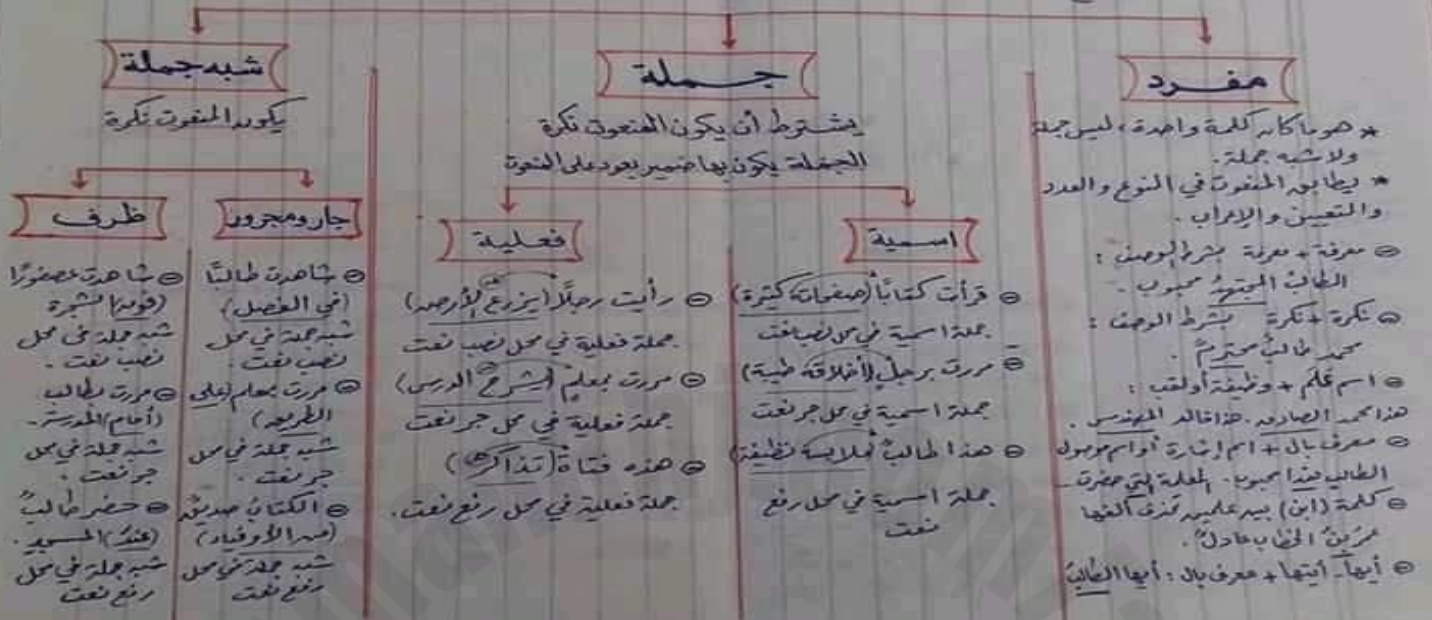 مفرد
* هو ما كان كلمة واحدة، ليس جملة
ولا شبه جملة.
* يطابق المنعوت في النوع والعدد
والتعيين والإعراب.
معرفة + معرفة بشرط الوصف:
الطالبُ المجتهدُ محبوب.
نكرة + نكرة بشرط الوصف:
محمد طالبٌ محترمٌ.
اسم علم + وظيفة أو لقب:
هذا محمد الصادق. هذا خالد المهندس.
معرف بال + اسم إشارة أو اسم موصول
الطالب هذا محبوب. المعلمة التي حضرت
كلمة (ابن) بين علمين تحذف ألفها
عمرُ بنُ الخطاب عادلٌ.
أيها - أيتها + معرف بال: أيها الطالبُ
جملة
يشترط أن يكون المنعوت نكرة
الجملة يكون بها ضمير يعود على المنعوت
اسمية
قرأت كتابًا (صفحاته كثيرة)
جملة اسمية في محل نصب نعت
مررت برجلٍ (أخلاقه طيبة)
جملة اسمية في محل جر نعت
هذا طالبٌ (ملابسه نظيفة)
جملة اسمية في محل رفع
نعت
فعلية
رأيت رجلًا (يزرع الأرض)
جملة فعلية في محل نصب نعت
مررت بمعلمٍ (يشرح الدرس)
جملة فعلية في محل جر نعت
هذه فتاة (تذاكر)
جملة فعلية في محل رفع نعت.
شبه جملة
يكون المنعوت نكرة
جار ومجرور
شاهدت طالبًا
(في الفصل)
شبه جملة في محل
نصب نعت.
مررت بمعلم (على
الطريق)
شبه جملة في محل
جر نعت.
الكتابُ صديقٌ
(من الأوفياء)
شبه جملة في محل
رفع نعت
ظرف
شاهدت عصفورًا
(فوق) الشجرة
شبه جملة في محل
نصب نعت.
مررت بطالب
(أمام) المدرسة.
شبه جملة في محل
جر نعت.
حضر طالبٌ
(عند) المسجد.
شبه جملة في محل
رفع نعت